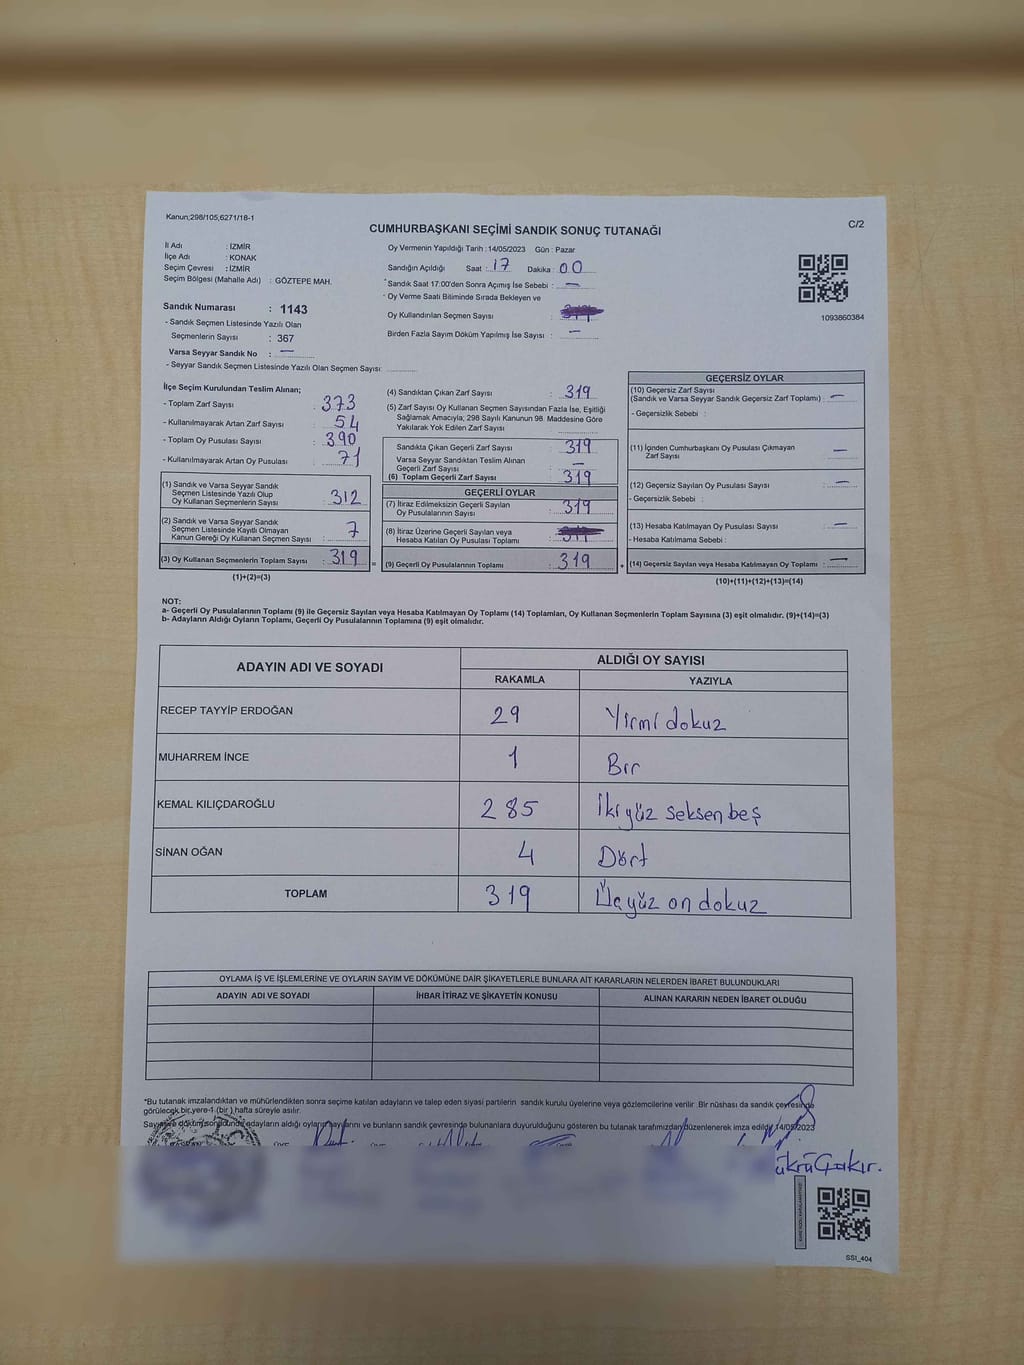 Kanun;298/105,6271/18-1
C/2
CUMHURBAŞKANI SEÇİMİ SANDIK SONUÇ TUTANAĞI
İl Adı : İZMİR
İlçe Adı : KONAK
Seçim Çevresi : İZMİR
Seçim Bölgesi (Mahalle Adı) : GÖZTEPE MAH.
Sandık Numarası : 1143
- Sandık Seçmen Listesinde Yazılı Olan
Seçmenlerin Sayısı : 367
Varsa Seyyar Sandık No : —
- Seyyar Sandık Seçmen Listesinde Yazılı Olan Seçmen Sayısı:
Oy Vermenin Yapıldığı Tarih : 14/05/2023 Gün : Pazar
Sandığın Açıldığı Saat : 17 Dakika : 00
Sandık Saat 17:00'den Sonra Açımış İse Sebebi : —
Oy Verme Saati Bitiminde Sırada Bekleyen ve
Oy Kullandırılan Seçmen Sayısı :
Birden Fazla Sayım Döküm Yapılmış İse Sayısı : —
1093860384
İlçe Seçim Kurulundan Teslim Alınan;
- Toplam Zarf Sayısı : 373
- Kullanılmayarak Artan Zarf Sayısı : 54
- Toplam Oy Pusulası Sayısı : 390
- Kullanılmayarak Artan Oy Pusulası : 71
(1) Sandık ve Varsa Seyyar Sandık
Seçmen Listesinde Yazılı Olup
Oy Kullanan Seçmenlerin Sayısı : 312
(2) Sandık ve Varsa Seyyar Sandık
Seçmen Listesinde Kayıtlı Olmayan
Kanun Gereği Oy Kullanan Seçmen Sayısı : 7
(3) Oy Kullanan Seçmenlerin Toplam Sayısı : 319
(1)+(2)=(3)
(4) Sandıktan Çıkan Zarf Sayısı : 319
(5) Zarf Sayısı Oy Kullanan Seçmen Sayısından Fazla İse, Eşitliği
Sağlamak Amacıyla; 298 Sayılı Kanunun 98. Maddesine Göre
Yakılarak Yok Edilen Zarf Sayısı :
Sandıkta Çıkan Geçerli Zarf Sayısı : 319
Varsa Seyyar Sandıktan Teslim Alınan
Geçerli Zarf Sayısı : —
(6) Toplam Geçerli Zarf Sayısı : 319
GEÇERLİ OYLAR
(7) İtiraz Edilmeksizin Geçerli Sayılan
Oy Pusulalarının Sayısı : 319
(8) İtiraz Üzerine Geçerli Sayılan veya
Hesaba Katılan Oy Pusulası Toplamı :
= (9) Geçerli Oy Pusulalarının Toplamı : 319 +
GEÇERSİZ OYLAR
(10) Geçersiz Zarf Sayısı
(Sandık ve Varsa Seyyar Sandık Geçersiz Zarf Toplamı) : —
- Geçersizlik Sebebi :
(11) İçinden Cumhurbaşkanı Oy Pusulası Çıkmayan
Zarf Sayısı : —
(12) Geçersiz Sayılan Oy Pusulası Sayısı : —
- Geçersizlik Sebebi :
(13) Hesaba Katılmayan Oy Pusulası Sayısı : —
- Hesaba Katılmama Sebebi :
(14) Geçersiz Sayılan veya Hesaba Katılmayan Oy Toplamı : —
(10)+(11)+(12)+(13)=(14)
NOT:
a- Geçerli Oy Pusulalarının Toplamı (9) ile Geçersiz Sayılan veya Hesaba Katılmayan Oy Toplamı (14) Toplamları, Oy Kullanan Seçmenlerin Toplam Sayısına (3) eşit olmalıdır. (9)+(14)=(3)
b- Adayların Aldığı Oyların Toplamı, Geçerli Oy Pusulalarının Toplamına (9) eşit olmalıdır.
ADAYIN ADI VE SOYADI
ALDIĞI OY SAYISI
RAKAMLA YAZIYLA
RECEP TAYYİP ERDOĞAN 29 Yirmi dokuz
MUHARREM İNCE 1 Bir
KEMAL KILIÇDAROĞLU 285 İki yüz seksen beş
SİNAN OĞAN 4 Dört
TOPLAM 319 Üçyüz on dokuz
OYLAMA İŞ VE İŞLEMLERİNE VE OYLARIN SAYIM VE DÖKÜMÜNE DAİR ŞİKAYETLERLE BUNLARA AİT KARARLARIN NELERDEN İBARET BULUNDUKLARI
ADAYIN ADI VE SOYADI İHBAR İTİRAZ VE ŞİKAYETİN KONUSU ALINAN KARARIN NEDEN İBARET OLDUĞU
*Bu tutanak imzalandıktan ve mühürlendikten sonra seçime katılan adayların ve talep eden siyasi partilerin sandık kurulu üyelerine veya gözlemcilerine verilir. Bir nüshası da sandık çevresinde
görülecek bir yere 1 (bir ) hafta süreyle asılır.
Sayım ve döküm sonucunda adayların aldığı oyların sayılarını ve bunların sandık çevresinde bulunanlara duyurulduğunu gösteren bu tutanak tarafımızdan düzenlenerek imza edildi. 14/05/2023
ükrü Çakır.
SSI_404